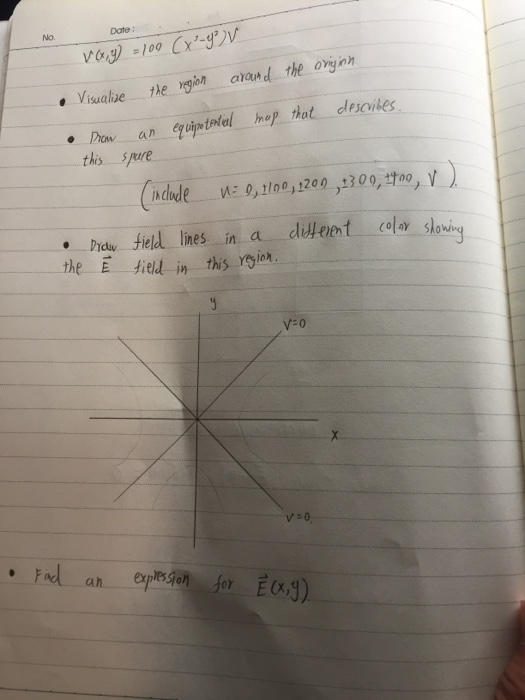 No.
Date :
V(x,y) = 100 (x²-y²)V
• Visualize the region around the origin
• Draw an equipotental map that describes
this space
(include V= 0, ±100, ±200, ±300, ±400, V).
• Draw field lines in a different color showing
the E⃗ field in this region.
y
V=0
x
V=0
• Find an expression for E⃗(x,y)